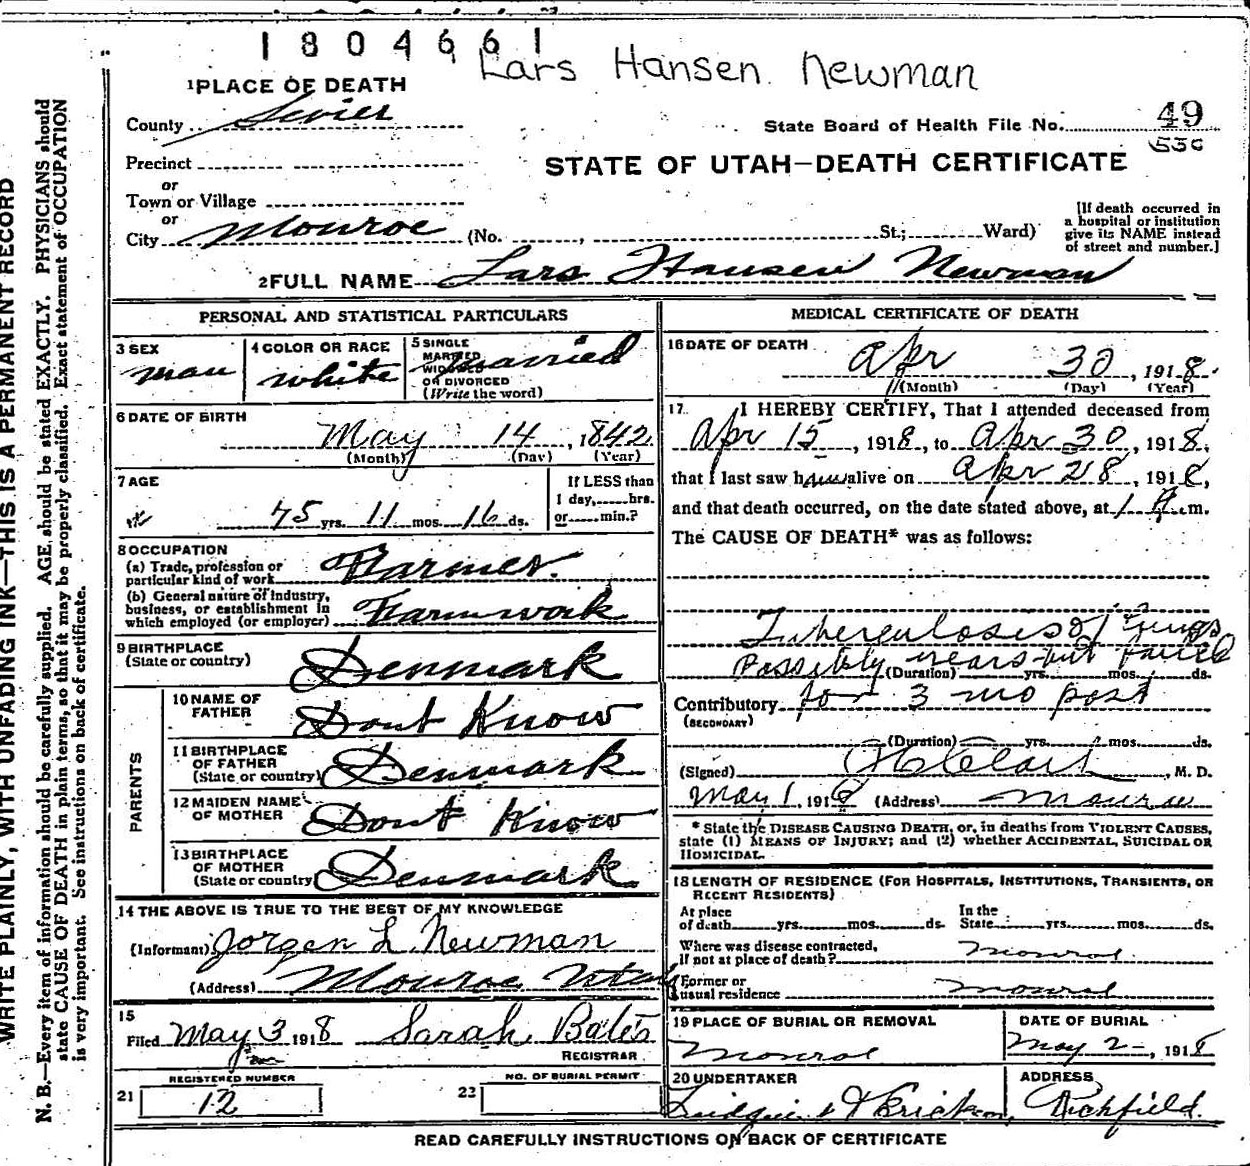 1804661
Lars Hansen Newman
1 PLACE OF DEATH
County Sevier
State Board of Health File No. 49
530
Precinct
STATE OF UTAH—DEATH CERTIFICATE
or
Town or Village
or
City Monroe (No. , St.; Ward)
[If death occurred in
a hospital or institution
give its NAME instead
of street and number.]
2 FULL NAME Lars Hansen Newman
PERSONAL AND STATISTICAL PARTICULARS
3 SEX
man
4 COLOR OR RACE
white
5 SINGLE
MARRIED
WIDOWED
OR DIVORCED
(Write the word)
married
6 DATE OF BIRTH
May 14, 1842
(Month) (Day) (Year)
7 AGE
75 yrs. 11 mos. 16 ds.
If LESS than
1 day, hrs.
or min.?
8 OCCUPATION
(a) Trade, profession or
particular kind of work Farmer.
(b) General nature of Industry,
business, or establishment in
which employed (or employer) Farm work
9 BIRTHPLACE
(State or country) Denmark
PARENTS
10 NAME OF
FATHER Dont Know
11 BIRTHPLACE
OF FATHER
(State or country) Denmark
12 MAIDEN NAME
OF MOTHER Dont Know
13 BIRTHPLACE
OF MOTHER
(State or country) Denmark
14 THE ABOVE IS TRUE TO THE BEST OF MY KNOWLEDGE
(Informant) Jorgen L Newman
(Address) Monroe Utah
15
Filed May 3 1918 Sarah Bates
REGISTRAR
REGISTERED NUMBER
21 12
NO. OF BURIAL PERMIT
22
MEDICAL CERTIFICATE OF DEATH
16 DATE OF DEATH
Apr 30, 1918.
(Month) (Day) (Year)
17. I HEREBY CERTIFY, That I attended deceased from
Apr 15, 1918, to Apr 30, 1918,
that I last saw him alive on Apr 28, 1918,
and that death occurred, on the date stated above, at 1 A.m.
The CAUSE OF DEATH* was as follows:
Tuberculosis of lungs
Possibly years but failed
(Duration) yrs. mos. ds.
Contributory for 3 mo past
(SECONDARY)
(Duration) yrs. mos. ds.
(Signed) , M. D.
May 1, 1918 (Address) Monroe
* State the DISEASE CAUSING DEATH, or, in deaths from VIOLENT CAUSES,
state (1) MEANS OF INJURY; and (2) whether ACCIDENTAL, SUICIDAL OR
HOMICIDAL.
18 LENGTH OF RESIDENCE (FOR HOSPITALS, INSTITUTIONS, TRANSIENTS, OR
RECENT RESIDENTS)
At place
of death yrs. mos. ds.
In the
State yrs. mos. ds.
Where was disease contracted,
if not at place of death? Monroe
Former or
usual residence Monroe
19 PLACE OF BURIAL OR REMOVAL
Monroe
DATE OF BURIAL
May 2, 1918
20 UNDERTAKER
ADDRESS
Richfield.
READ CAREFULLY INSTRUCTIONS ON BACK OF CERTIFICATE
WRITE PLAINLY, WITH UNFADING INK—THIS IS A PERMANENT RECORD
N. B.—Every item of information should be carefully supplied. AGE should be stated EXACTLY. PHYSICIANS should
state CAUSE OF DEATH in plain terms, so that it may be properly classified. Exact statement of OCCUPATION
is very important. See instructions on back of certificate.